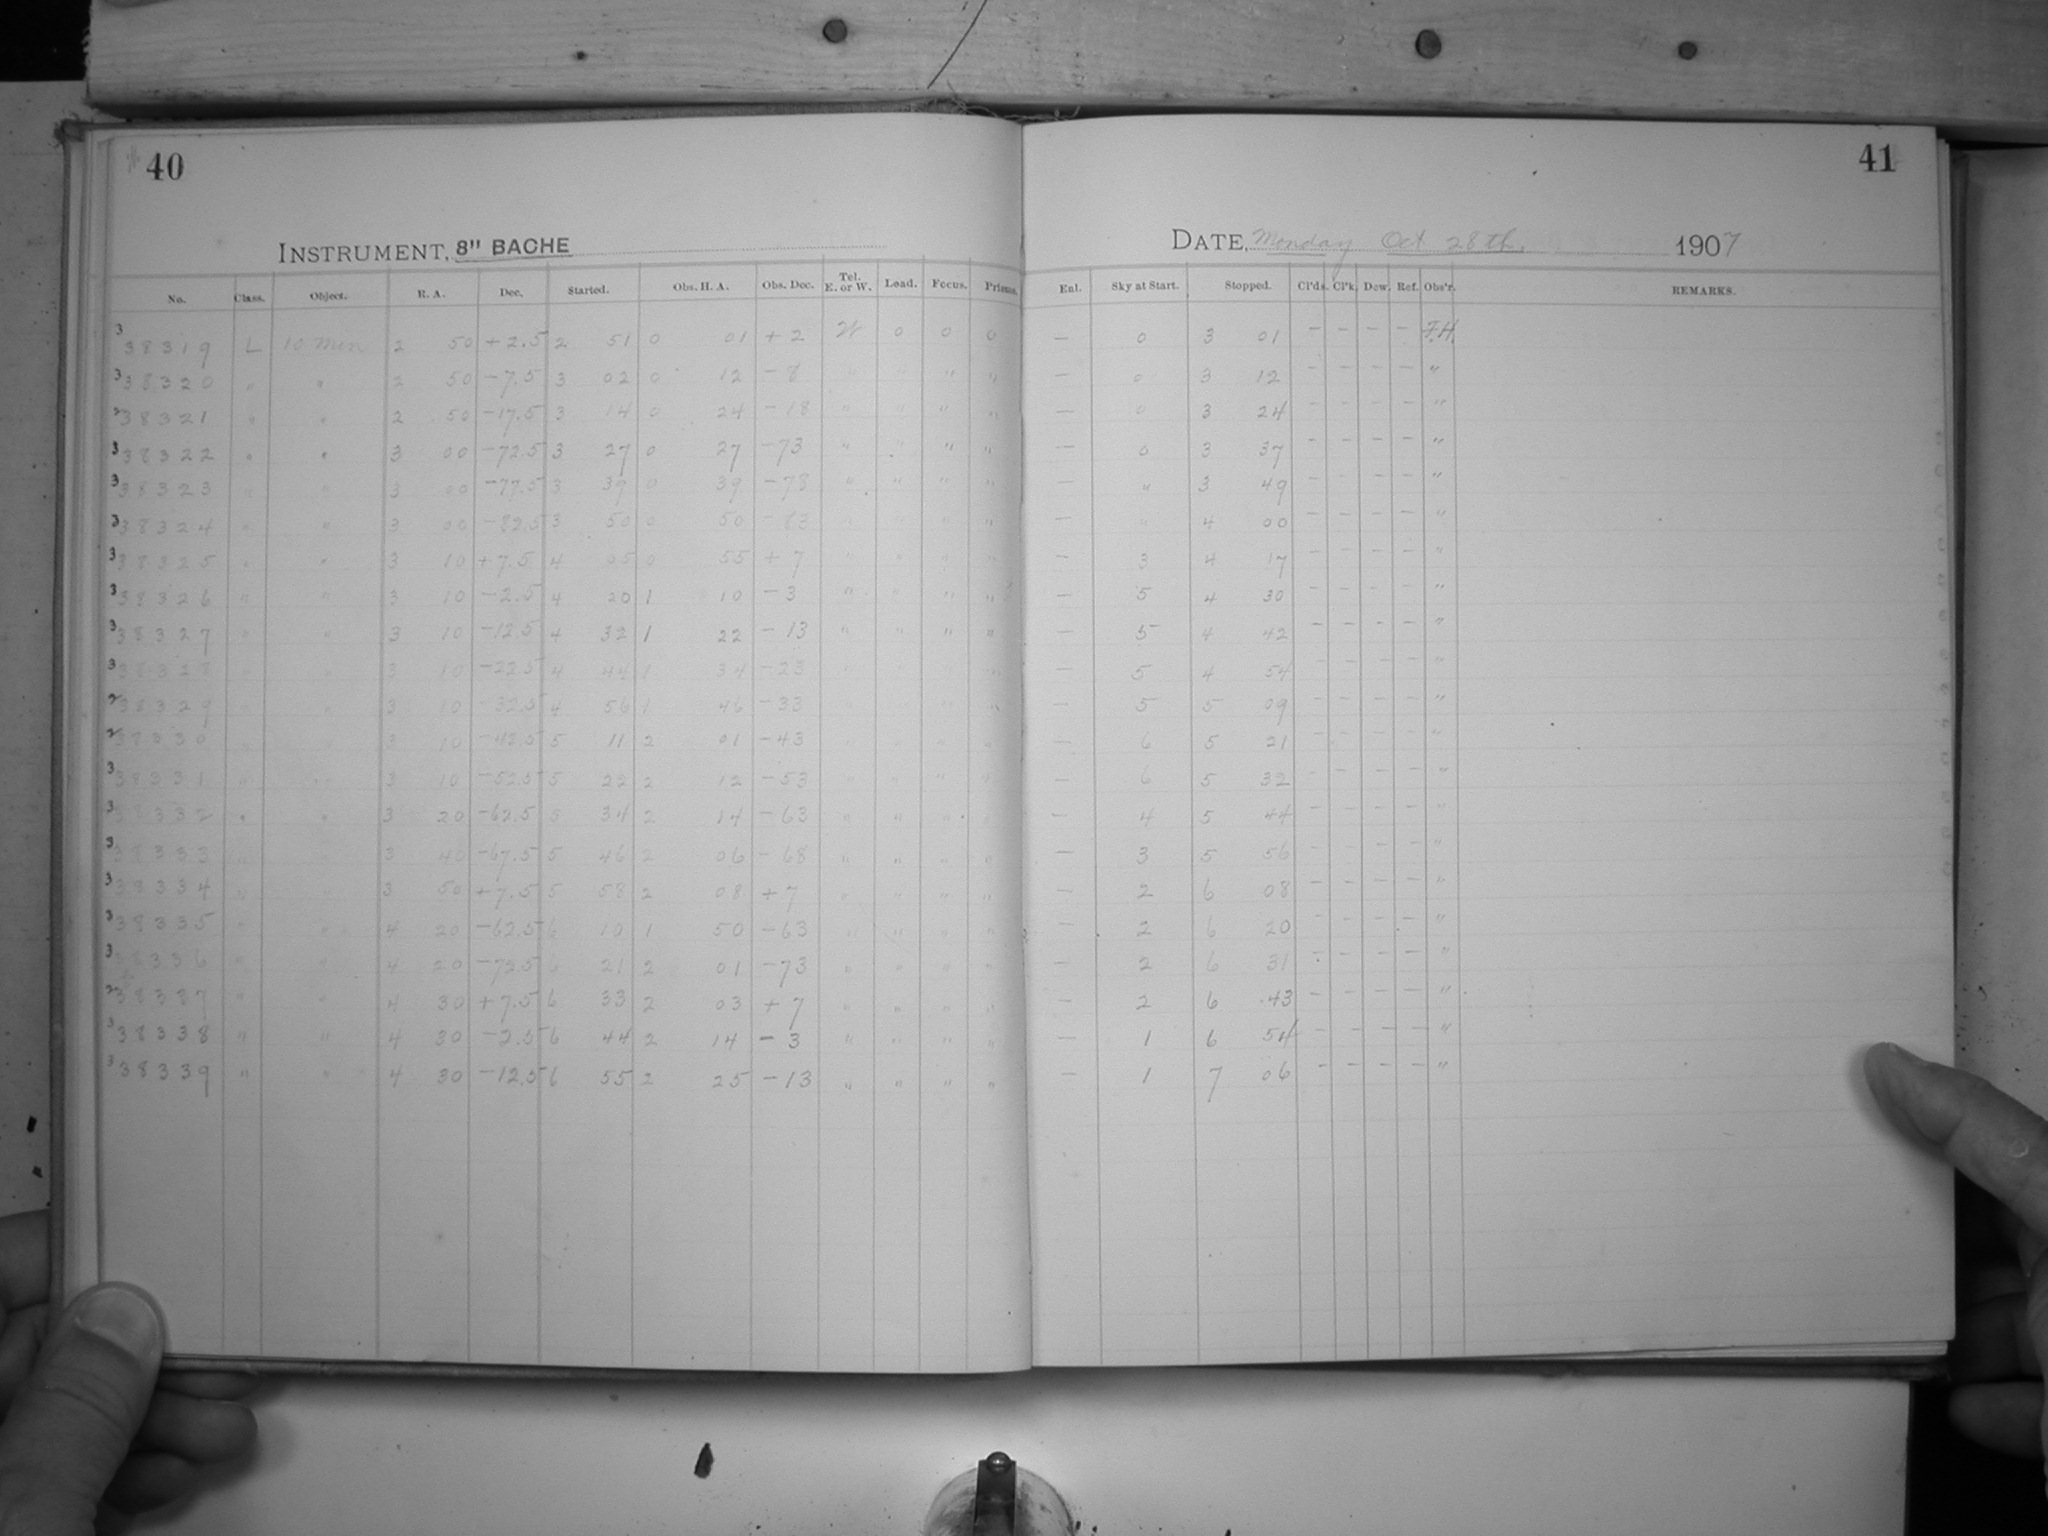 40
41
INSTRUMENT, 8" BACHE
DATE, Monday Oct 28th. 1907
No. Class. Object. R. A. Dec. Started. Obs. H. A. Obs. Dec. Tel. E. or W. Load. Focus. Prisms. Enl. Sky at Start. Stopped. Cl'ds. Cl'k. Dew. Ref. Obs'r. REMARKS.
3 38319 L 10 Min 2 50 +2.5 2 51 0 01 +2 W 0 0 0 — 0 3 01 — — — — F.H.
3 38320 " " 2 50 -7.5 3 02 0 12 -8 " " " " — 0 3 12 — — — — "
3 38321 " " 2 50 -17.5 3 14 0 24 -18 " " " " — 0 3 24 — — — — "
3 38322 " " 3 00 -72.5 3 27 0 27 -73 " " " " — 0 3 37 — — — — "
3 38323 " " 3 00 -77.5 3 39 0 39 -78 " " " " — " 3 49 — — — — "
3 38324 " " 3 00 -82.5 3 50 0 50 -83 " " " " — " 4 00 — — — — "
3 38325 " " 3 10 +7.5 4 05 0 55 +7 " " " " — 3 4 17 — — — — "
3 38326 " " 3 10 -2.5 4 20 1 10 -3 " " " " — 5 4 30 — — — — "
3 38327 " " 3 10 -12.5 4 32 1 22 -13 " " " " — 5 4 42 — — — — "
3 38328 " " 3 10 -22.5 4 44 1 34 -23 " " " " — 5 4 54 — — — — "
2 38329 " " 3 10 -32.5 4 56 1 46 -33 " " " " — 5 5 09 — — — — "
2 38330 " " 3 10 -42.5 5 11 2 01 -43 " " " " — 6 5 21 — — — — "
3 38331 " " 3 10 -52.5 5 22 2 12 -53 " " " " — 6 5 32 — — — — "
3 38332 " " 3 20 -62.5 5 34 2 14 -63 " " " " — 4 5 44 — — — — "
3 38333 " " 3 40 -67.5 5 46 2 06 -68 " " " " — 3 5 56 — — — — "
3 38334 " " 3 50 +7.5 5 58 2 08 +7 " " " " — 2 6 08 — — — — "
3 38335 " " 4 20 -62.5 6 10 1 50 -63 " " " " — 2 6 20 — — — — "
3 38336 " " 4 20 -72.5 6 21 2 01 -73 " " " " — 2 6 31 — — — — "
38337 " " 4 30 +7.5 6 33 2 03 +7 " " " " — 2 6 43 — — — — "
3 38338 " " 4 30 -2.5 6 44 2 14 -3 " " " " — 1 6 54 — — — — "
3 38339 " " 4 30 -12.5 6 55 2 25 -13 " " " " — 1 7 06 — — — — "